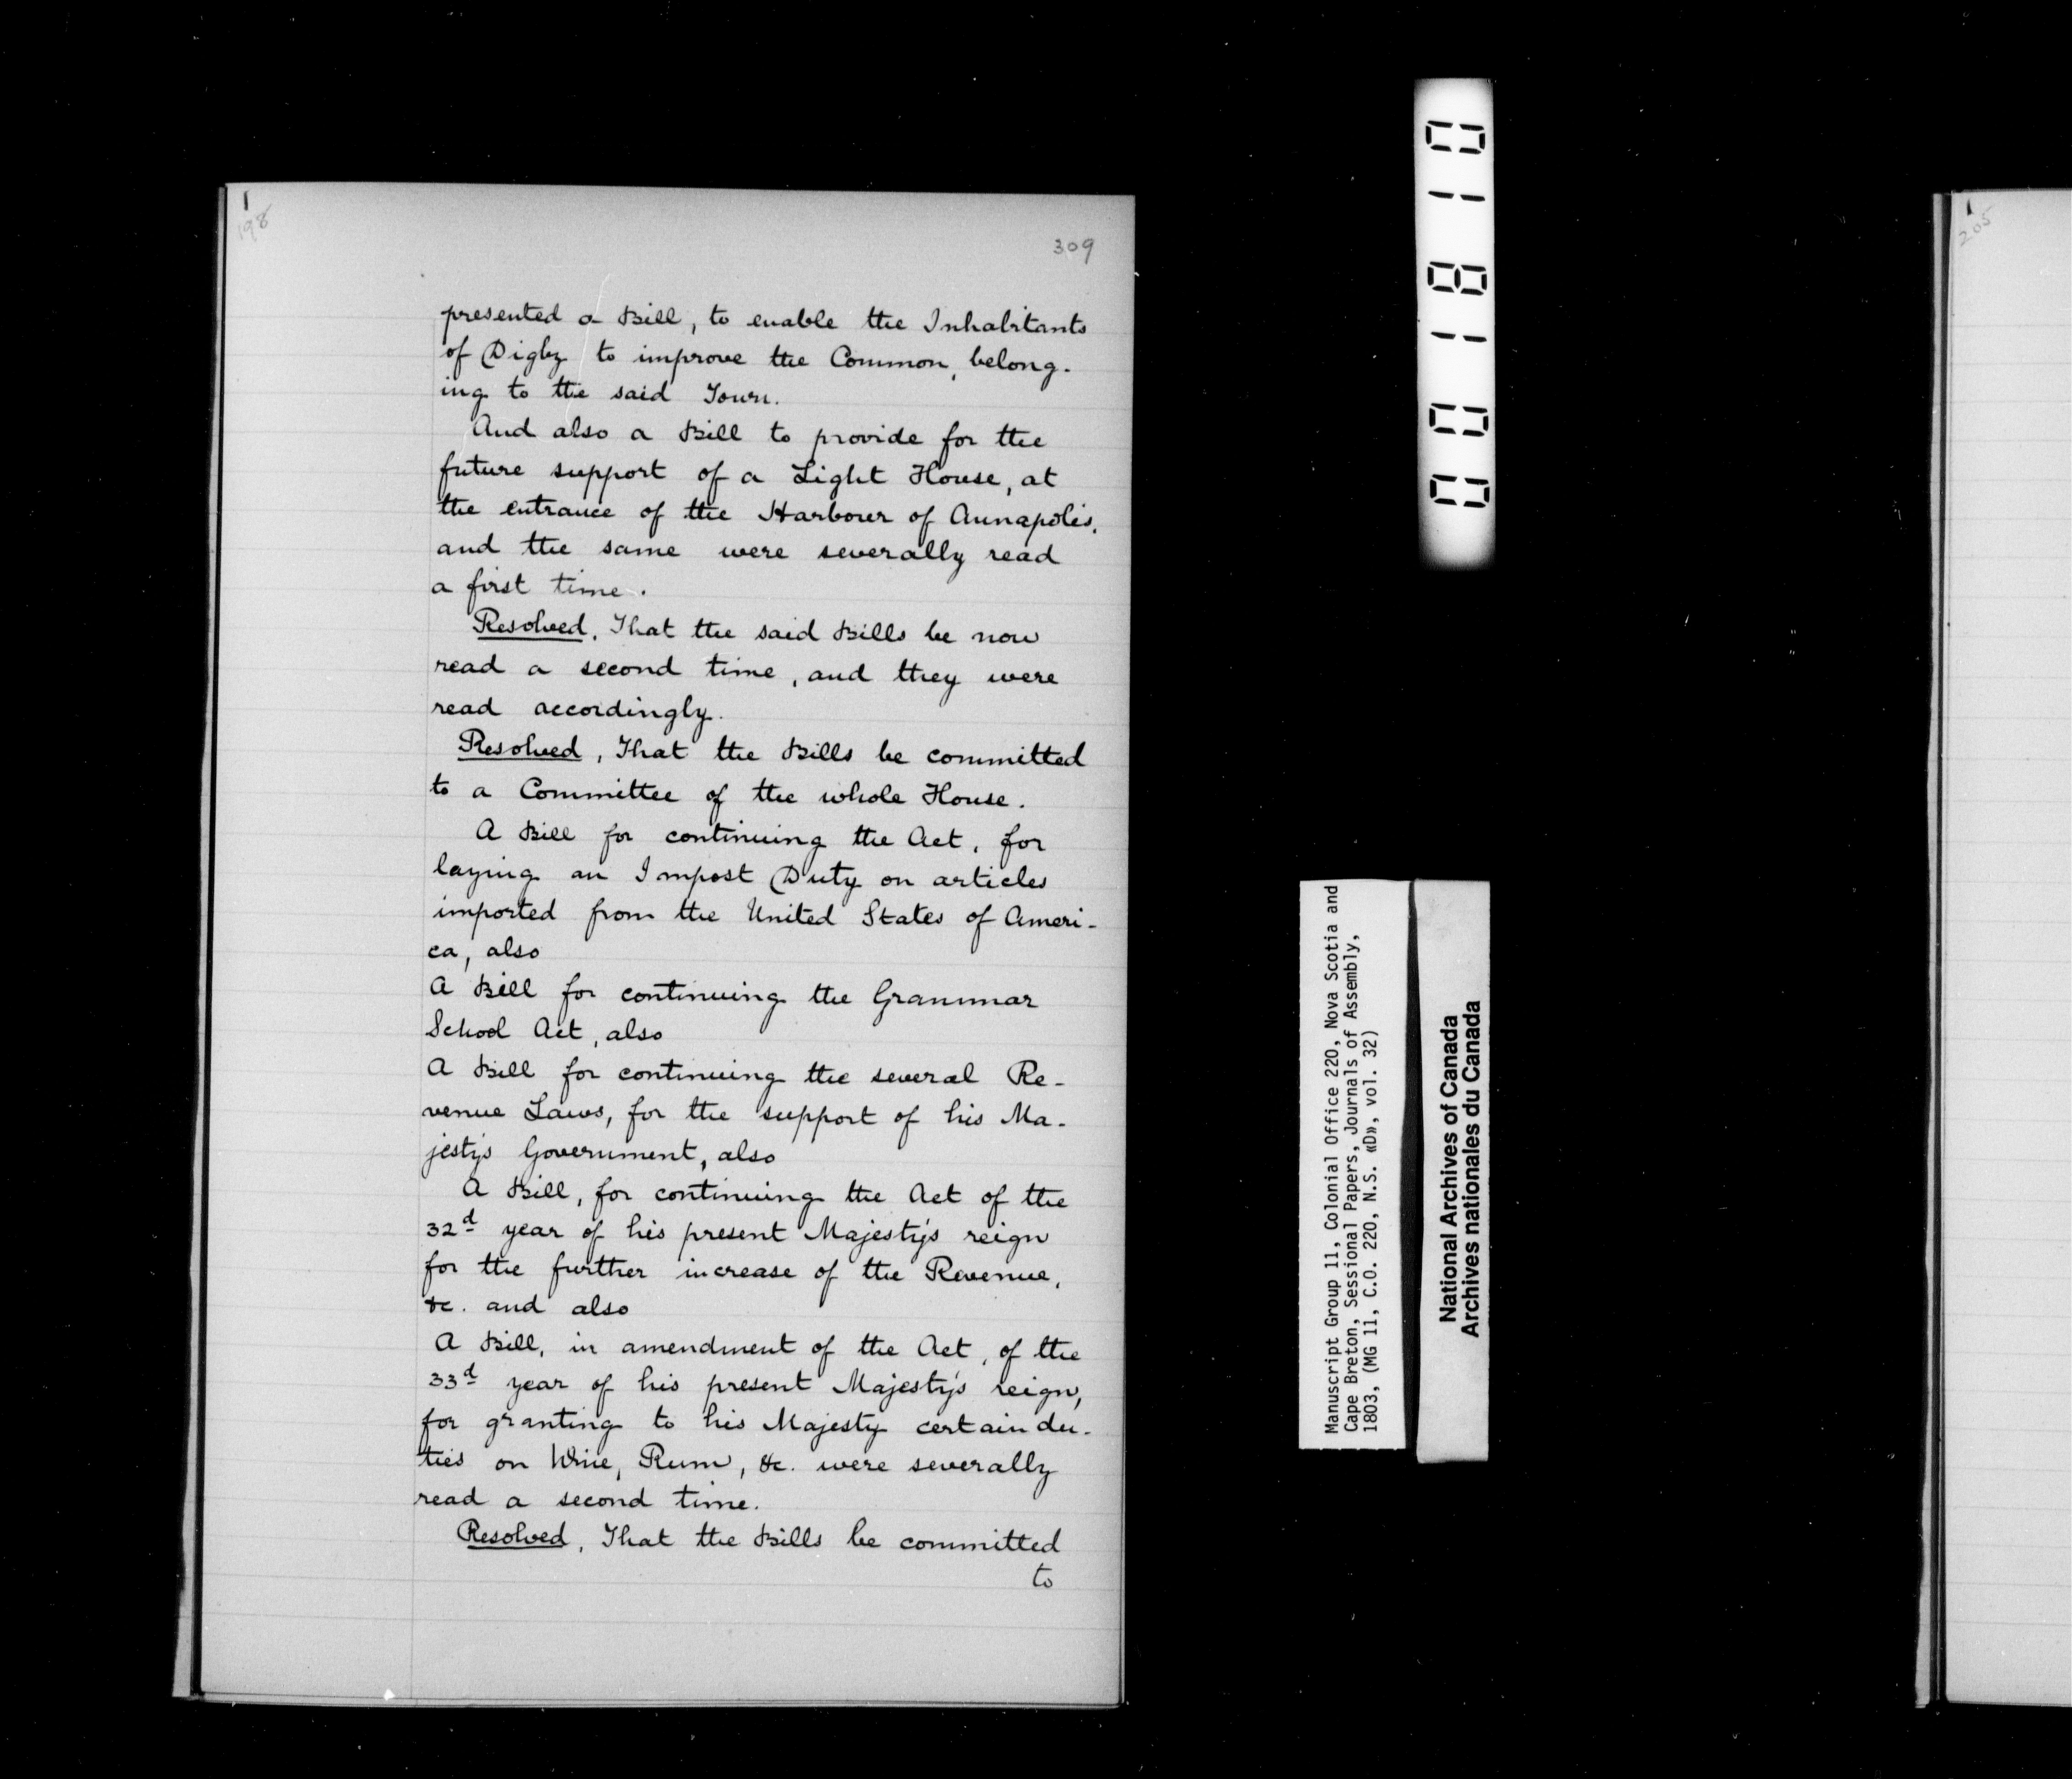 198
309
presented a Bill, to enable the Inhabitants
of Digby to improve the Common, belong-
ing to the said Town.
And also a Bill to provide for the
future support of a Light House, at
the entrance of the Harbour of Annapolis,
and the same were severally read
a first time.
Resolved, That the said Bills be now
read a second time, and they were
read accordingly.
Resolved, That the Bills be committed
to a Committee of the whole House.
A Bill for continuing the Act, for
laying an Impost Duty on articles
imported from the United States of Ameri-
ca, also
A Bill for continuing the Grammar
School Act, also
A Bill for continuing the several Re-
venue Laws, for the support of his Ma-
jesty's Government, also
A Bill, for continuing the Act of the
32d year of his present Majesty's reign
for the further increase of the Revenue,
&c. and also
A Bill, in amendment of the Act, of the
33d year of his present Majesty's reign,
for granting to his Majesty certain du-
ties on Wine, Rum, &c. were severally
read a second time.
Resolved, That the Bills be committed
to
Manuscript Group 11, Colonial Office 220, Nova Scotia and
Cape Breton, Sessional Papers, Journals of Assembly,
1803, (MG 11, C.O. 220, N.S. «D», vol. 32)
National Archives of Canada
Archives nationales du Canada
205